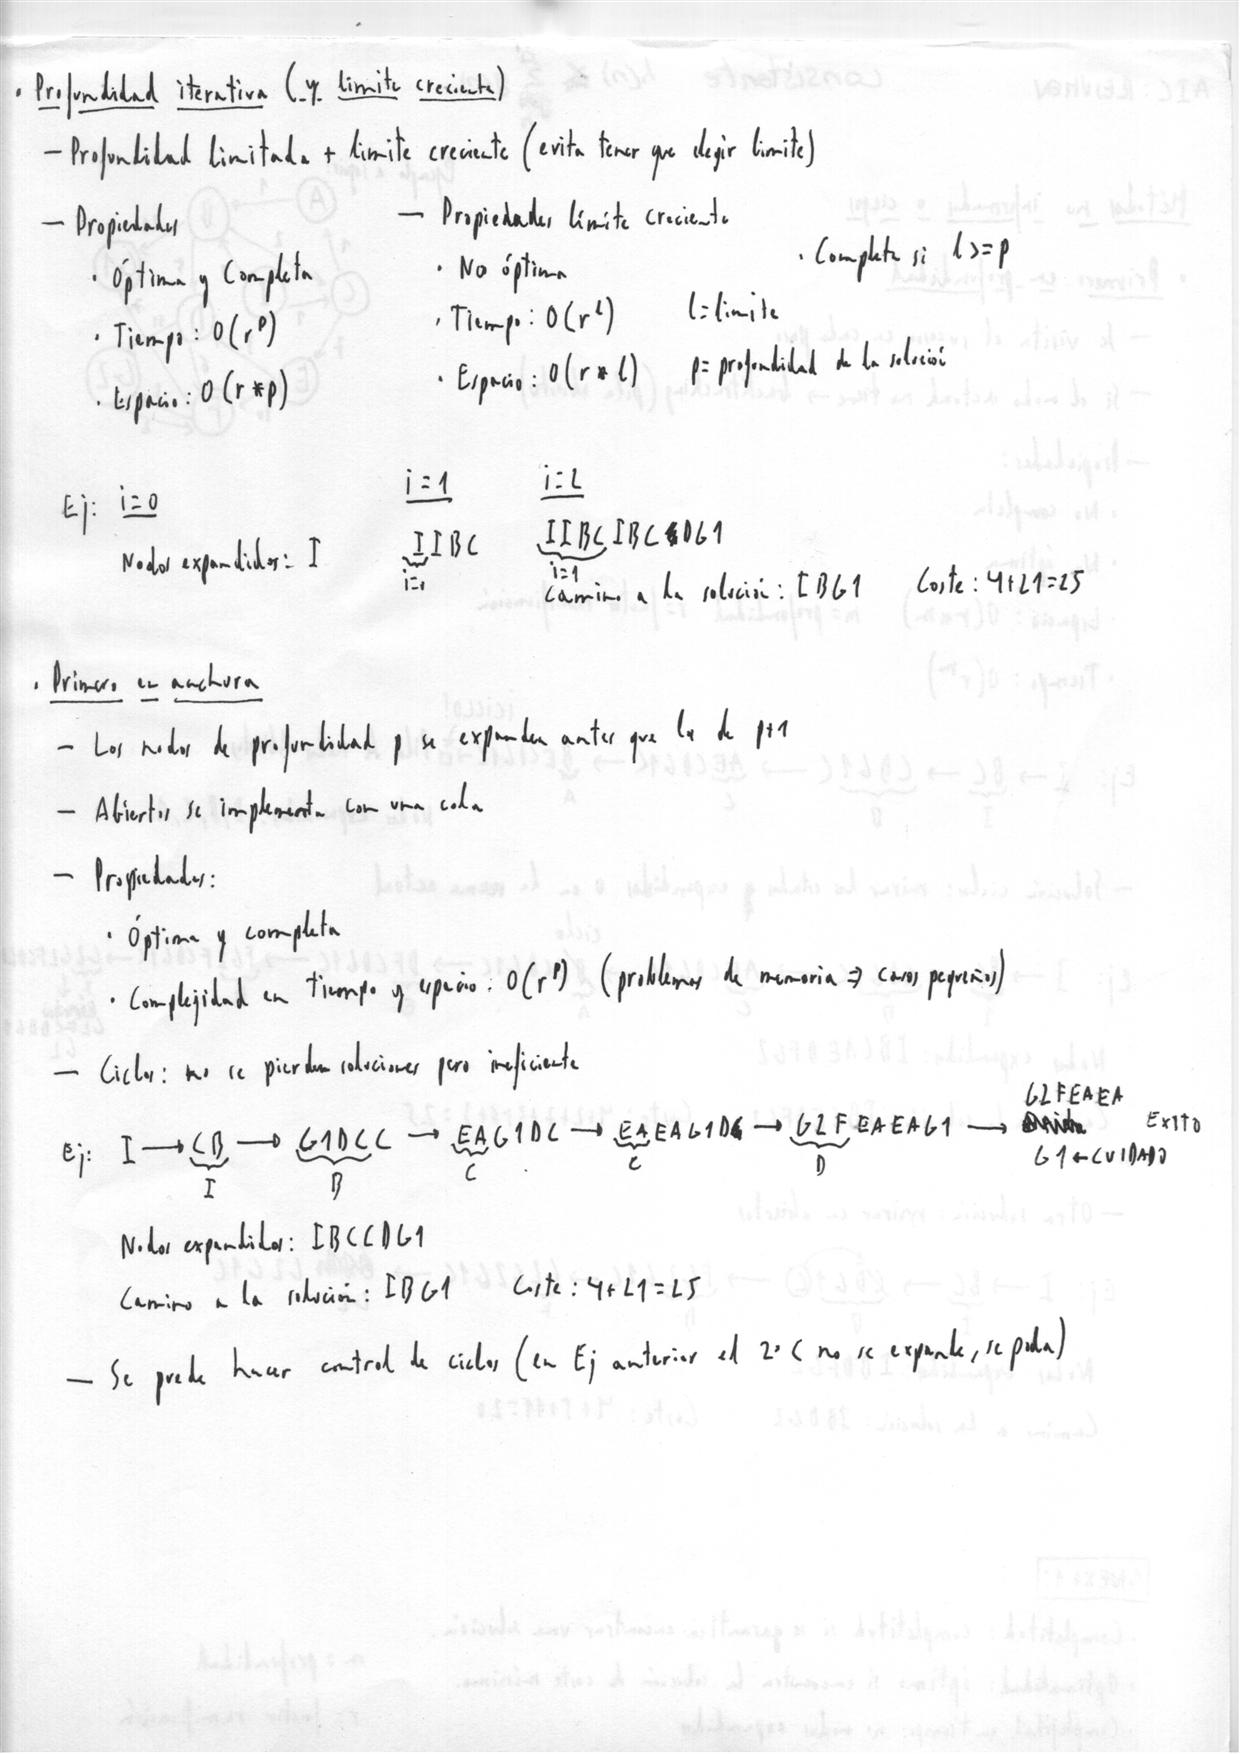 · Profundidad iterativa (y limite creciente)
– Profundidad limitada + limite creciente (evita tener que elegir limite)
– Propiedades
· Óptima y Completa
· Tiempo: O(r^p)
· Espacio: O(r*p)
– Propiedades límite creciente
· No óptima
· Completa si l>=p
· Tiempo: O(r^l) l=limite
· Espacio: O(r*l) p=profundidad de la solución
Ej: i=0 i=1 i=2
Nodos expandidos: I IIBC IIBCIBCDG1
i=0 i=1
Camino a la solución: IBG1 Coste: 4+21=25
· Primero en anchura
– Los nodos de profundidad p se expanden antes que los de p+1
– Abiertos se implementa con una cola
– Propiedades:
· Óptima y completa
· Complejidad en tiempo y espacio: O(r^p) (problemas de memoria ⇒ casos pequeños)
– Ciclos: no se pierden soluciones pero ineficiente
Ej: I → CB → G1DCC → EAG1DC → EAEAG1D → G2FEAEAG1 → G2FEAEA EXITO
I B C C D G1 ← CUIDADO
Nodos expandidos: IBCCDG1
Camino a la solución: IBG1 Coste: 4+21=25
– Se puede hacer control de ciclos (en Ej anterior el 2º C no se expande, se poda)